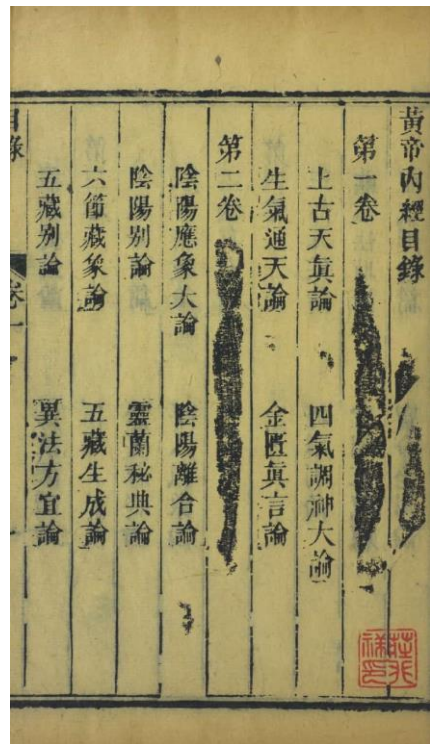 黃帝內經目錄
第一卷
上古天眞論 四氣調神大論
生氣通天論 金匱眞言論
第二卷
陰陽應象大論 陰陽離合論
陰陽別論 靈蘭秘典論
六節藏象論 五藏生成論
五藏別論 異法方宜論
目錄 卷一